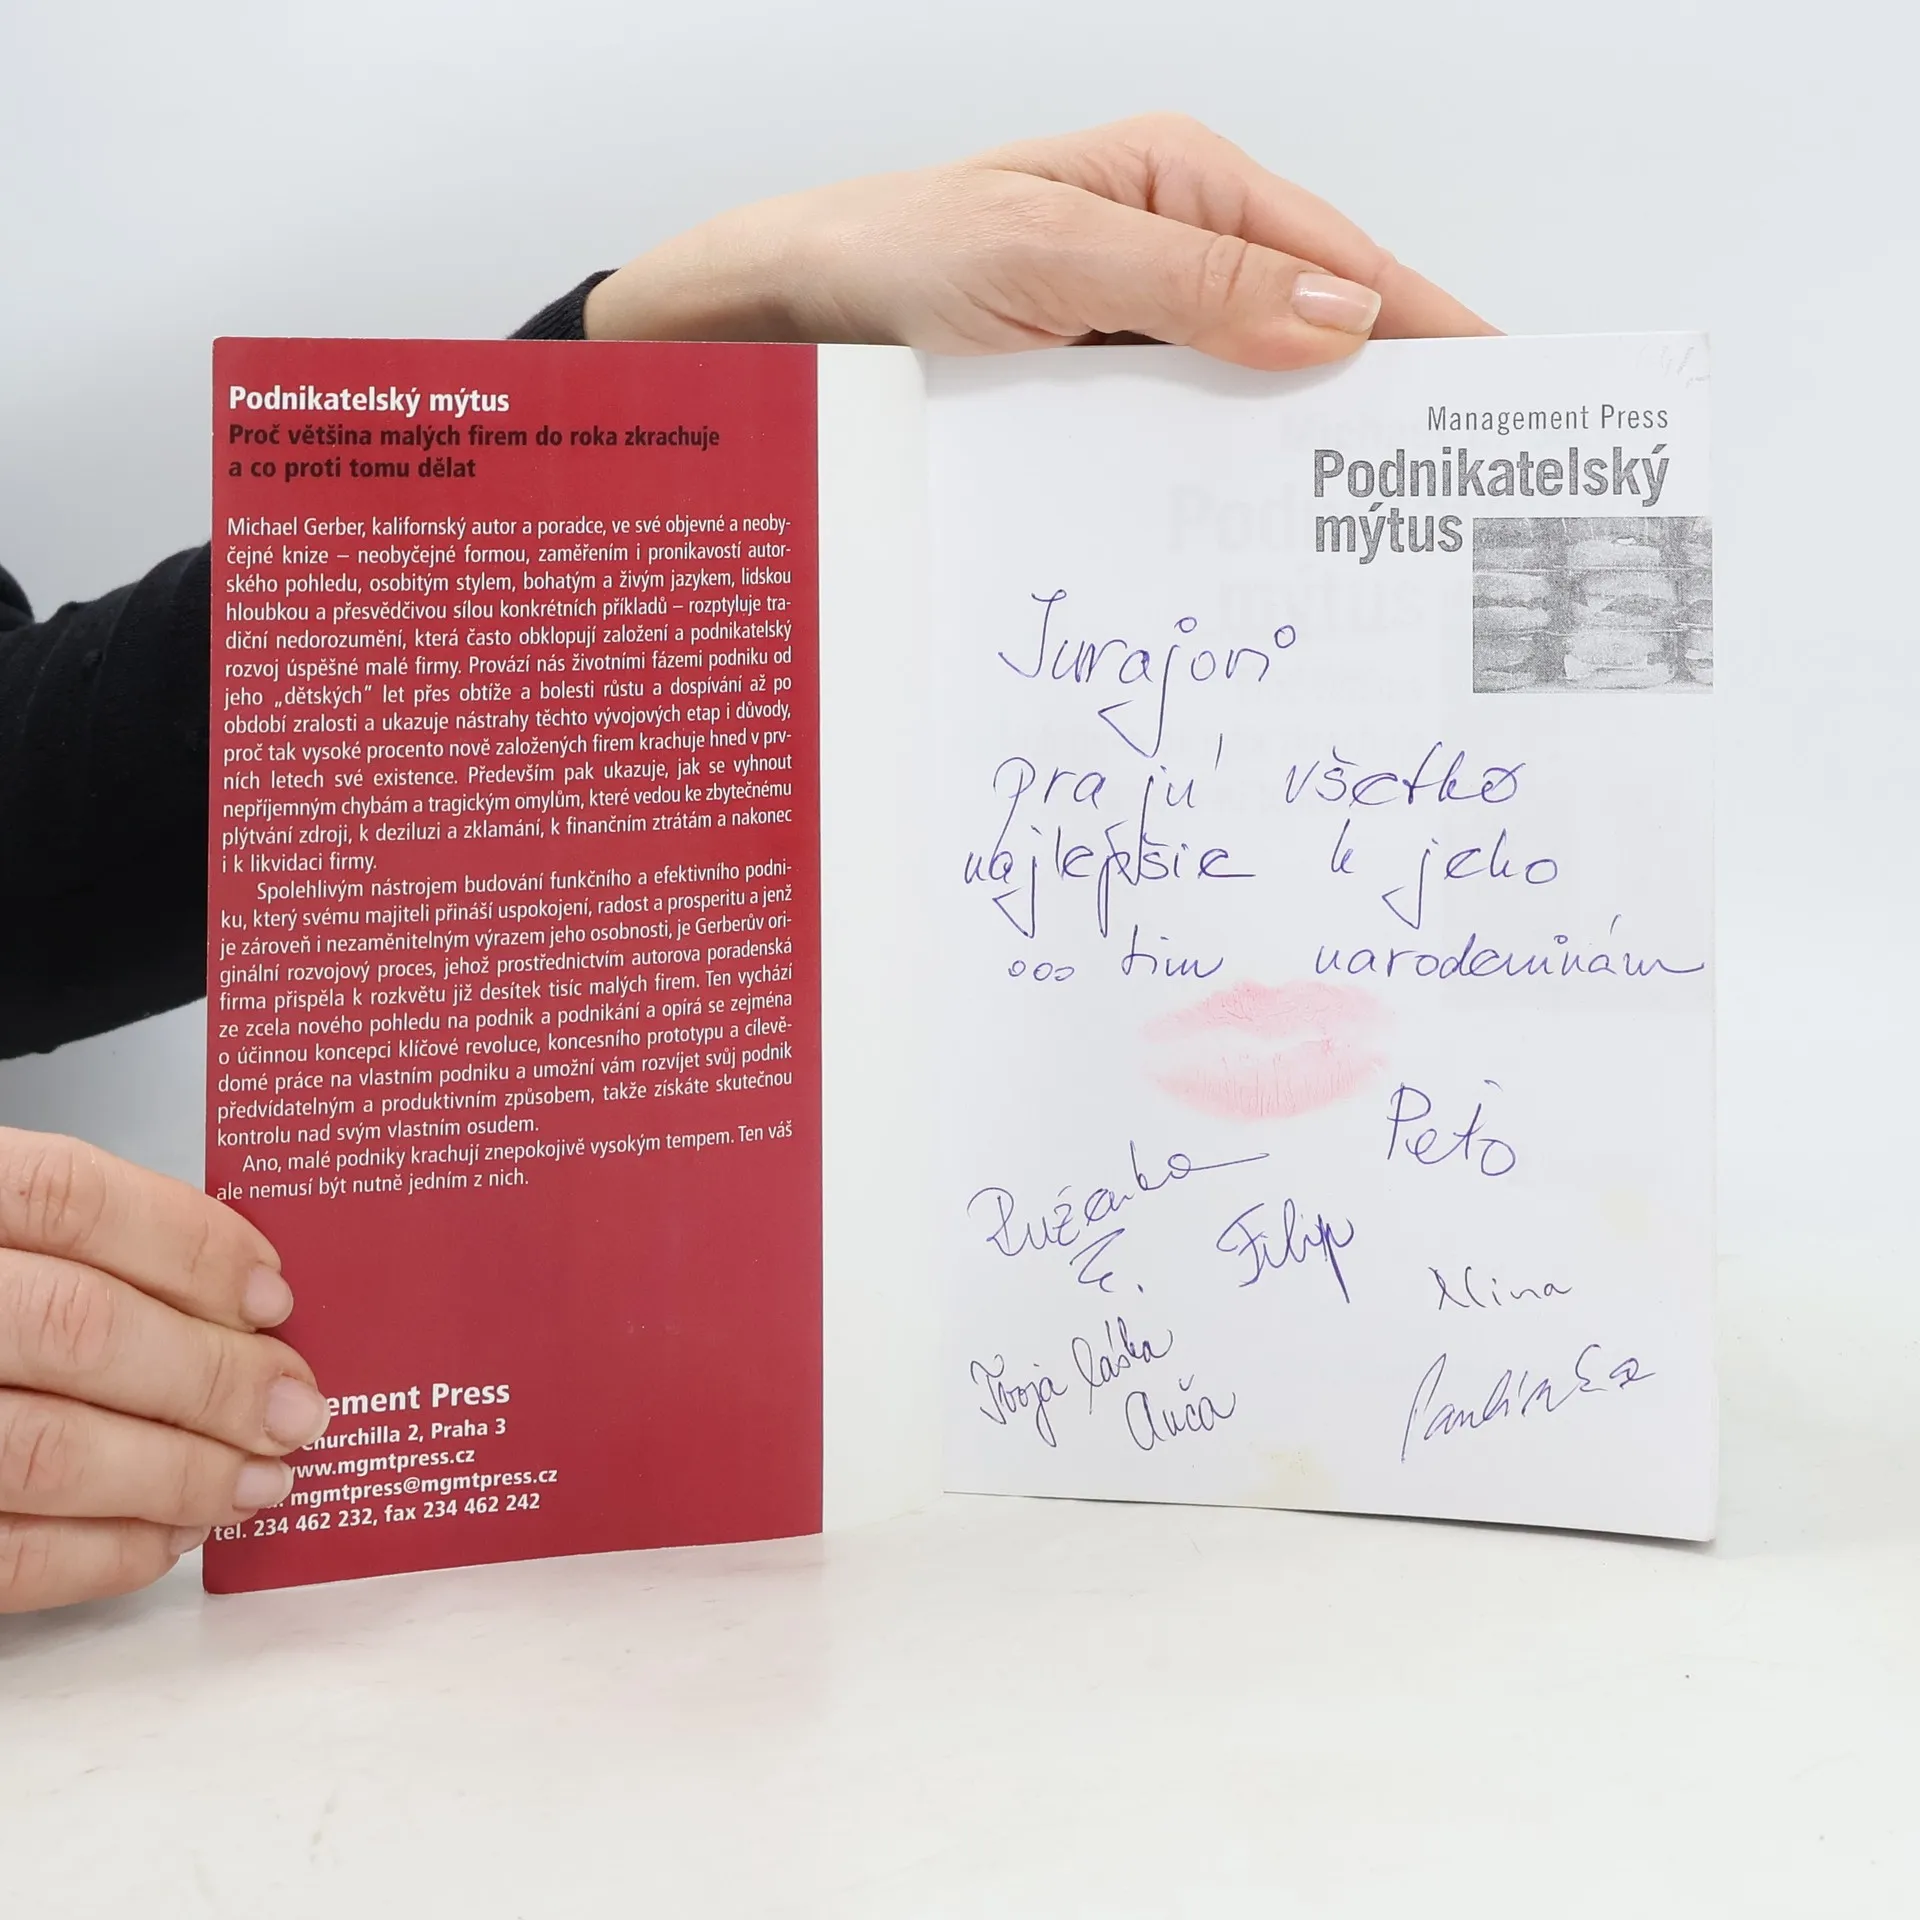 Podnikatelský mýtus
Proč většina malých firem do roka zkrachuje
a co proti tomu dělat
Michael Gerber, kalifornský autor a poradce, ve své objevné a neoby-
čejné knize – neobyčejné formou, zaměřením i pronikavostí autor-
ského pohledu, osobitým stylem, bohatým a živým jazykem, lidskou
hloubkou a přesvědčivou sílou konkrétních příkladů – rozptyluje tra-
diční nedorozumění, která často obklopují založení a podnikatelský
rozvoj úspěšné malé firmy. Provází nás životními fázemi podniku od
jeho „dětských" let přes obtíže a bolesti růstu a dospívání až po
období zralosti a ukazuje nástrahy těchto vývojových etap i důvody,
proč tak vysoké procento nově založených firem krachuje hned v prv-
ních letech své existence. Především pak ukazuje, jak se vyhnout
nepříjemným chybám a tragickým omylům, které vedou ke zbytečnému
plýtvání zdroji, k deziluzi a zklamání, k finančním ztrátám a nakonec
i k likvidaci firmy.
Spolehlivým nástrojem budování funkčního a efektivního podni-
ku, který svému majiteli přináší uspokojení, radost a prosperitu a jenž
je zároveň i nezaměnitelným výrazem jeho osobnosti, je Gerberův ori-
ginální rozvojový proces, jehož prostřednictvím autorova poradenská
firma přispěla k rozkvětu již desítek tisíc malých firem. Ten vychází
ze zcela nového pohledu na podnik a podnikání a opírá se zejména
o účinnou koncepci klíčové revoluce, koncesního prototypu a cílevě-
domé práce na vlastním podniku a umožní vám rozvíjet svůj podnik
předvídatelným a produktivním způsobem, takže získáte skutečnou
kontrolu nad svým vlastním osudem.
Ano, malé podniky krachují znepokojivě vysokým tempem. Ten váš
ale nemusí být nutně jedním z nich.
ement Press
Churchilla 2, Praha 3
www.mgmtpress.cz
mgmtpress@mgmtpress.cz
tel. 234 462 232, fax 234 462 242
Management Press
Podnikatelský
mýtus
Jurajovi
prajú všetko
najlepšie k jeho
ooo tim narodeninám
Peťo
Ruženka
Filip
Nina
Tvoja láska
Anča
Paulínka